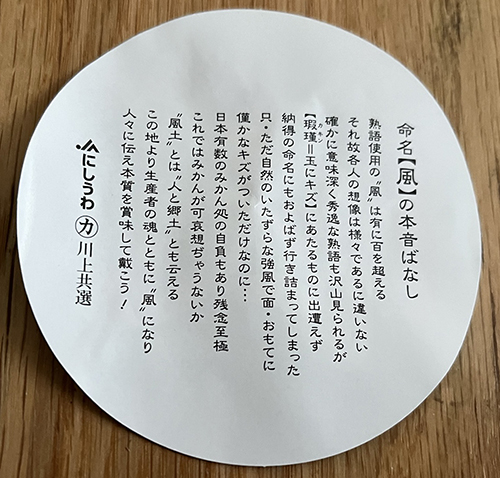 命名【風】の本音ばなし
熟語使用の〝風〟は有に百を超える
それ故各人の想像は様々であるに違いない
確かに意味深く秀逸な熟語も沢山見られるが
【瑕瑾=玉にキズ】にあたるものに出遭えず
カキン
納得の命名にもおよばず行き詰まってしまった
只・ただ自然のいたずらな強風で面・おもてに
僅かなキズがついただけなのに…
日本有数のみかん処の自負もあり残念至極
これではみかんが可哀想ぢゃうないか
〝風土〟とは〝人と郷土〟とも云える
この地より生産者の魂とともに〝風〟になり
人々に伝え本質を賞味して戴こう！
JAにしうわ カ 川上共選